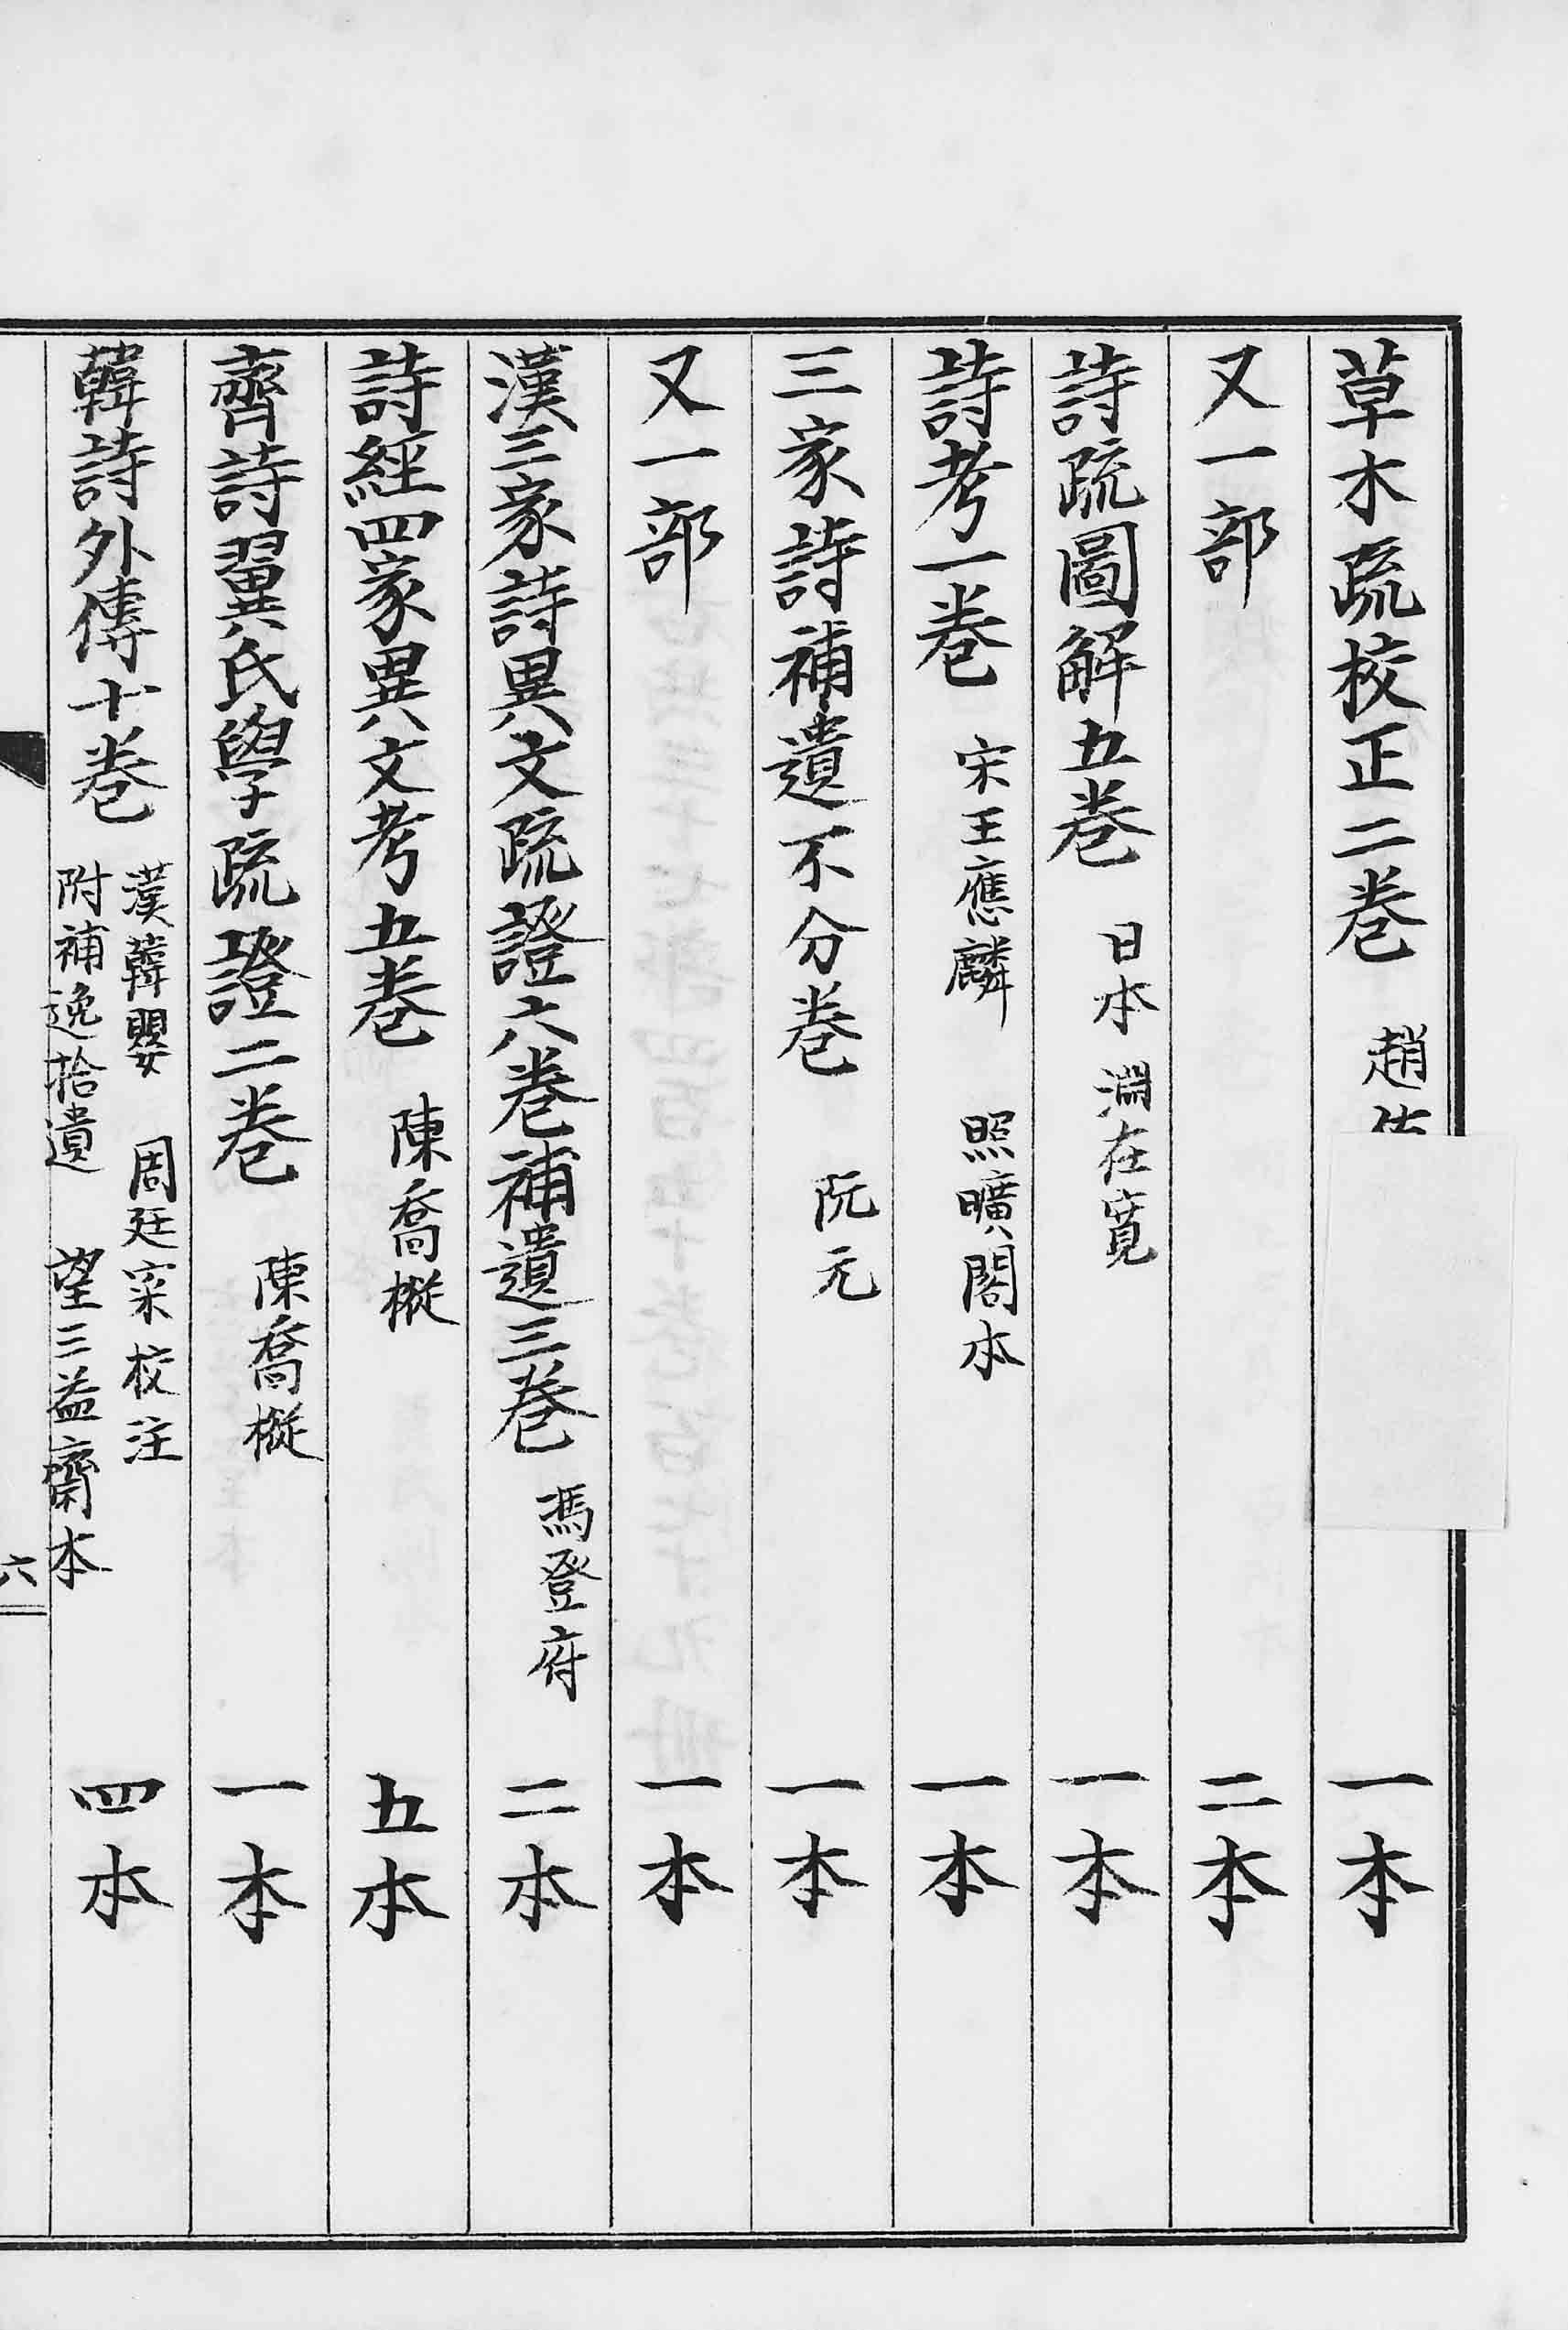 草木疏校正二卷 趙 一本
又一部 二本
詩疏圖解五卷 日本淵在寬 一本
詩考一卷 宋王應麟 照曠閣本 一本
三家詩補遺不分卷 阮元 一本
又一部 一本
漢三家詩異文疏證六卷補遺三卷 馮登府 二本
詩經四家異文考五卷 陳喬樅 五本
齊詩翼氏學疏證二卷 陳喬樅 一本
韓詩外傳十卷 漢韓嬰 周廷寀校注
附補逸拾遺 望三益齋本 四本
六